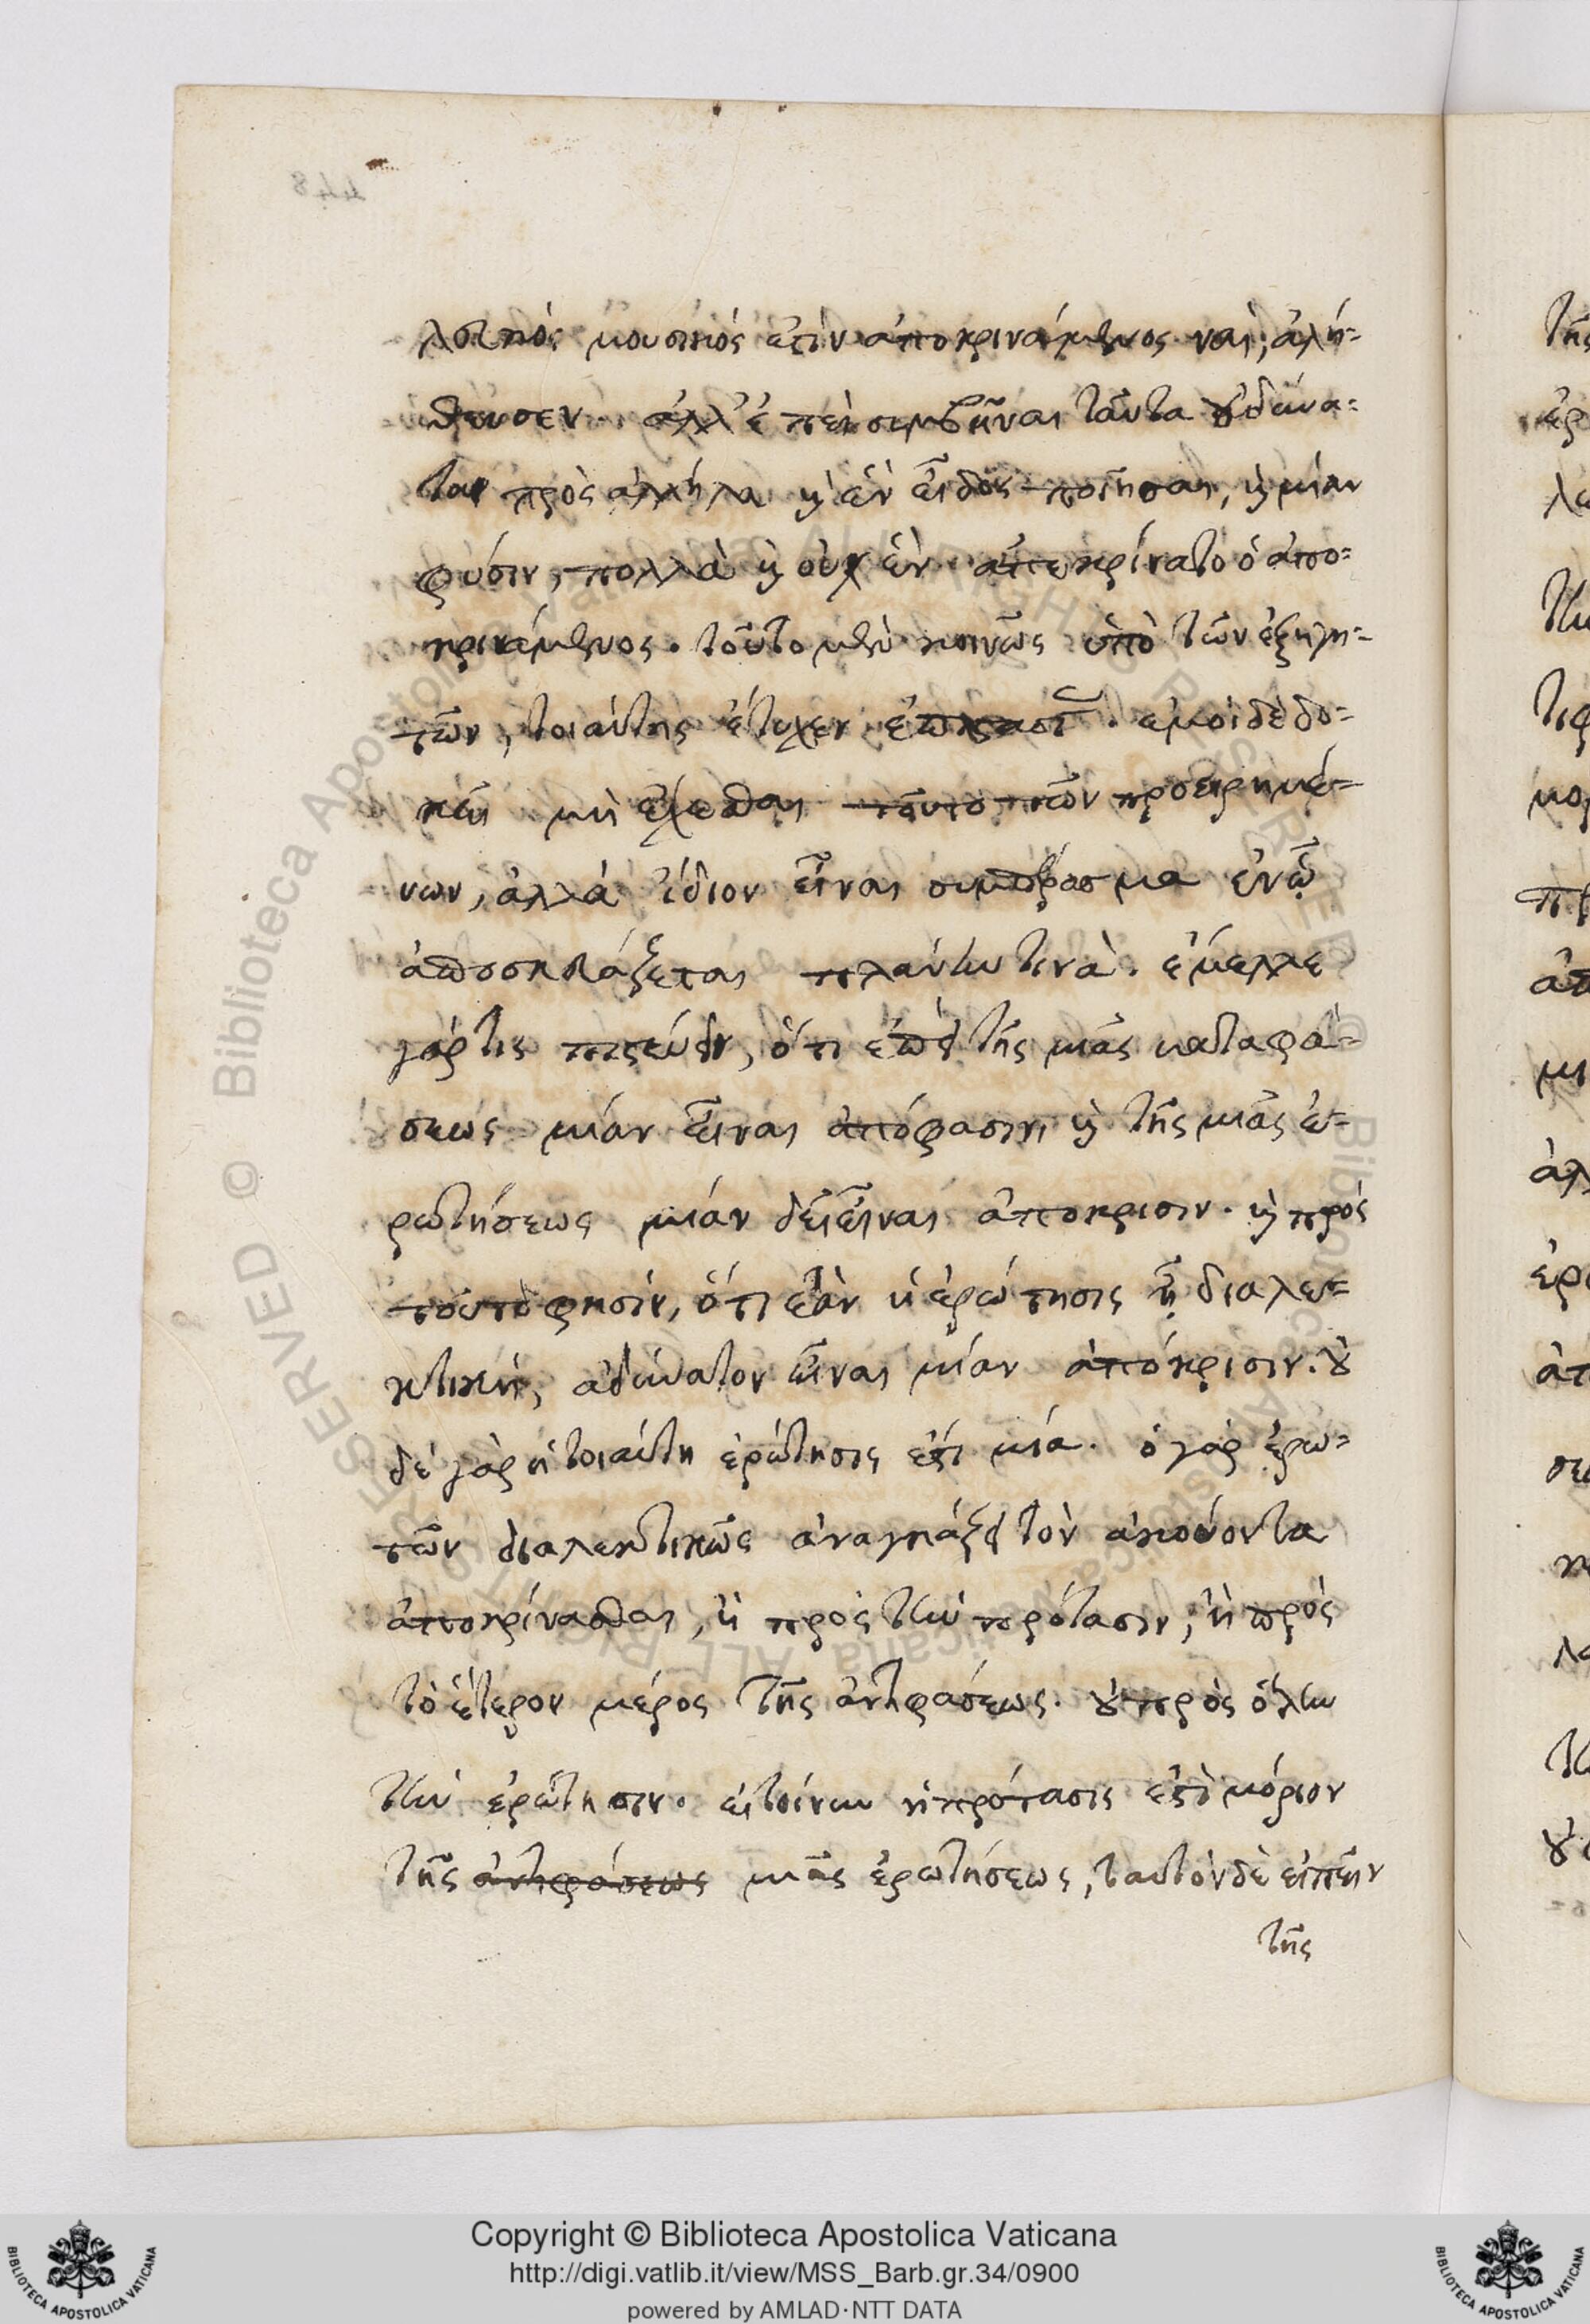 λοιπὸς μουσικός ἐστιν ἀποκρινάμενος ναί, ἀλή=
θευσεν ἀλλ' ἐπεὶ συμβῆναι ταῦτα οὐ δύνα=
ται πρὸς ἄλληλα καὶ ἓν εἶδος ποιῆσαι, καὶ μίαν
φύσιν, πολλὰ καὶ οὐχ ἓν ἀπεκρίνατο ὁ ἀπο=
κρινάμενος. τοῦτο μὲν κοινῶς ὑπὸ τῶν ἐξηγη=
τῶν, τοιαύτης ἔτυχεν ἐπιστασ. ἐμοὶ δὲ δο=
κεῖ μὴ ἔχεσθαι τοῦτο τῶν προειρημέ=
νων, ἀλλὰ ἴδιον εἶναι συμπέρασμα ἐν ᾧ
ἀποσκευάζεται πλάνην τινὰ. ἔμελλε
γάρ τις πιστεύειν, ὅτι ἐπεὶ τῆς μιᾶς καταφά=
σεως μίαν εἶναι ἀπόφασιν, καὶ τῆς μιᾶς ἐ=
ρωτήσεως μίαν δεῖ εἶναι ἀπόκρισιν. καὶ πρὸς
τοῦτο φησίν, ὅτι ἐὰν ἡ ἐρώτησις ᾖ διαλε=
κτικὴ, ἀδύνατον εἶναι μίαν ἀπόκρισιν. οὐ
δὲ γὰρ ἡ τοιαύτη ἐρώτησις ἐστὶ μία. ὁ γὰρ ἐρω=
τῶν διαλεκτικῶς ἀναγκάζει τὸν ἀκούοντα
ἀποκρίνασθαι, ἢ πρὸς τὴν πρότασιν, ἢ πρὸς
τὸ ἕτερον μέρος τῆς ἀντιφάσεως. οὐ πρὸς ὅλην
τὴν ἐρώτησιν. εἰ τοίνυν ἡ πρότασις ἐστὶ μόριον
τῆς ἀντιφάσεως μιᾶς ἐρωτήσεως, ταυτὸν δὲ εἰπεῖν
τῆς
Copyright © Biblioteca Apostolica Vaticana
http://digi.vatlib.it/view/MSS_Barb.gr.34/0900
powered by AMLAD·NTT DATA